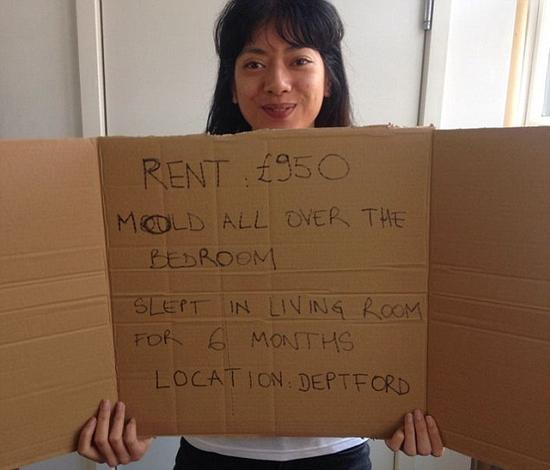 RENT : £950
MOULD ALL OVER THE
BEDROOM
SLEPT IN LIVING ROOM
FOR 6 MONTHS
LOCATION: DEPTFORD